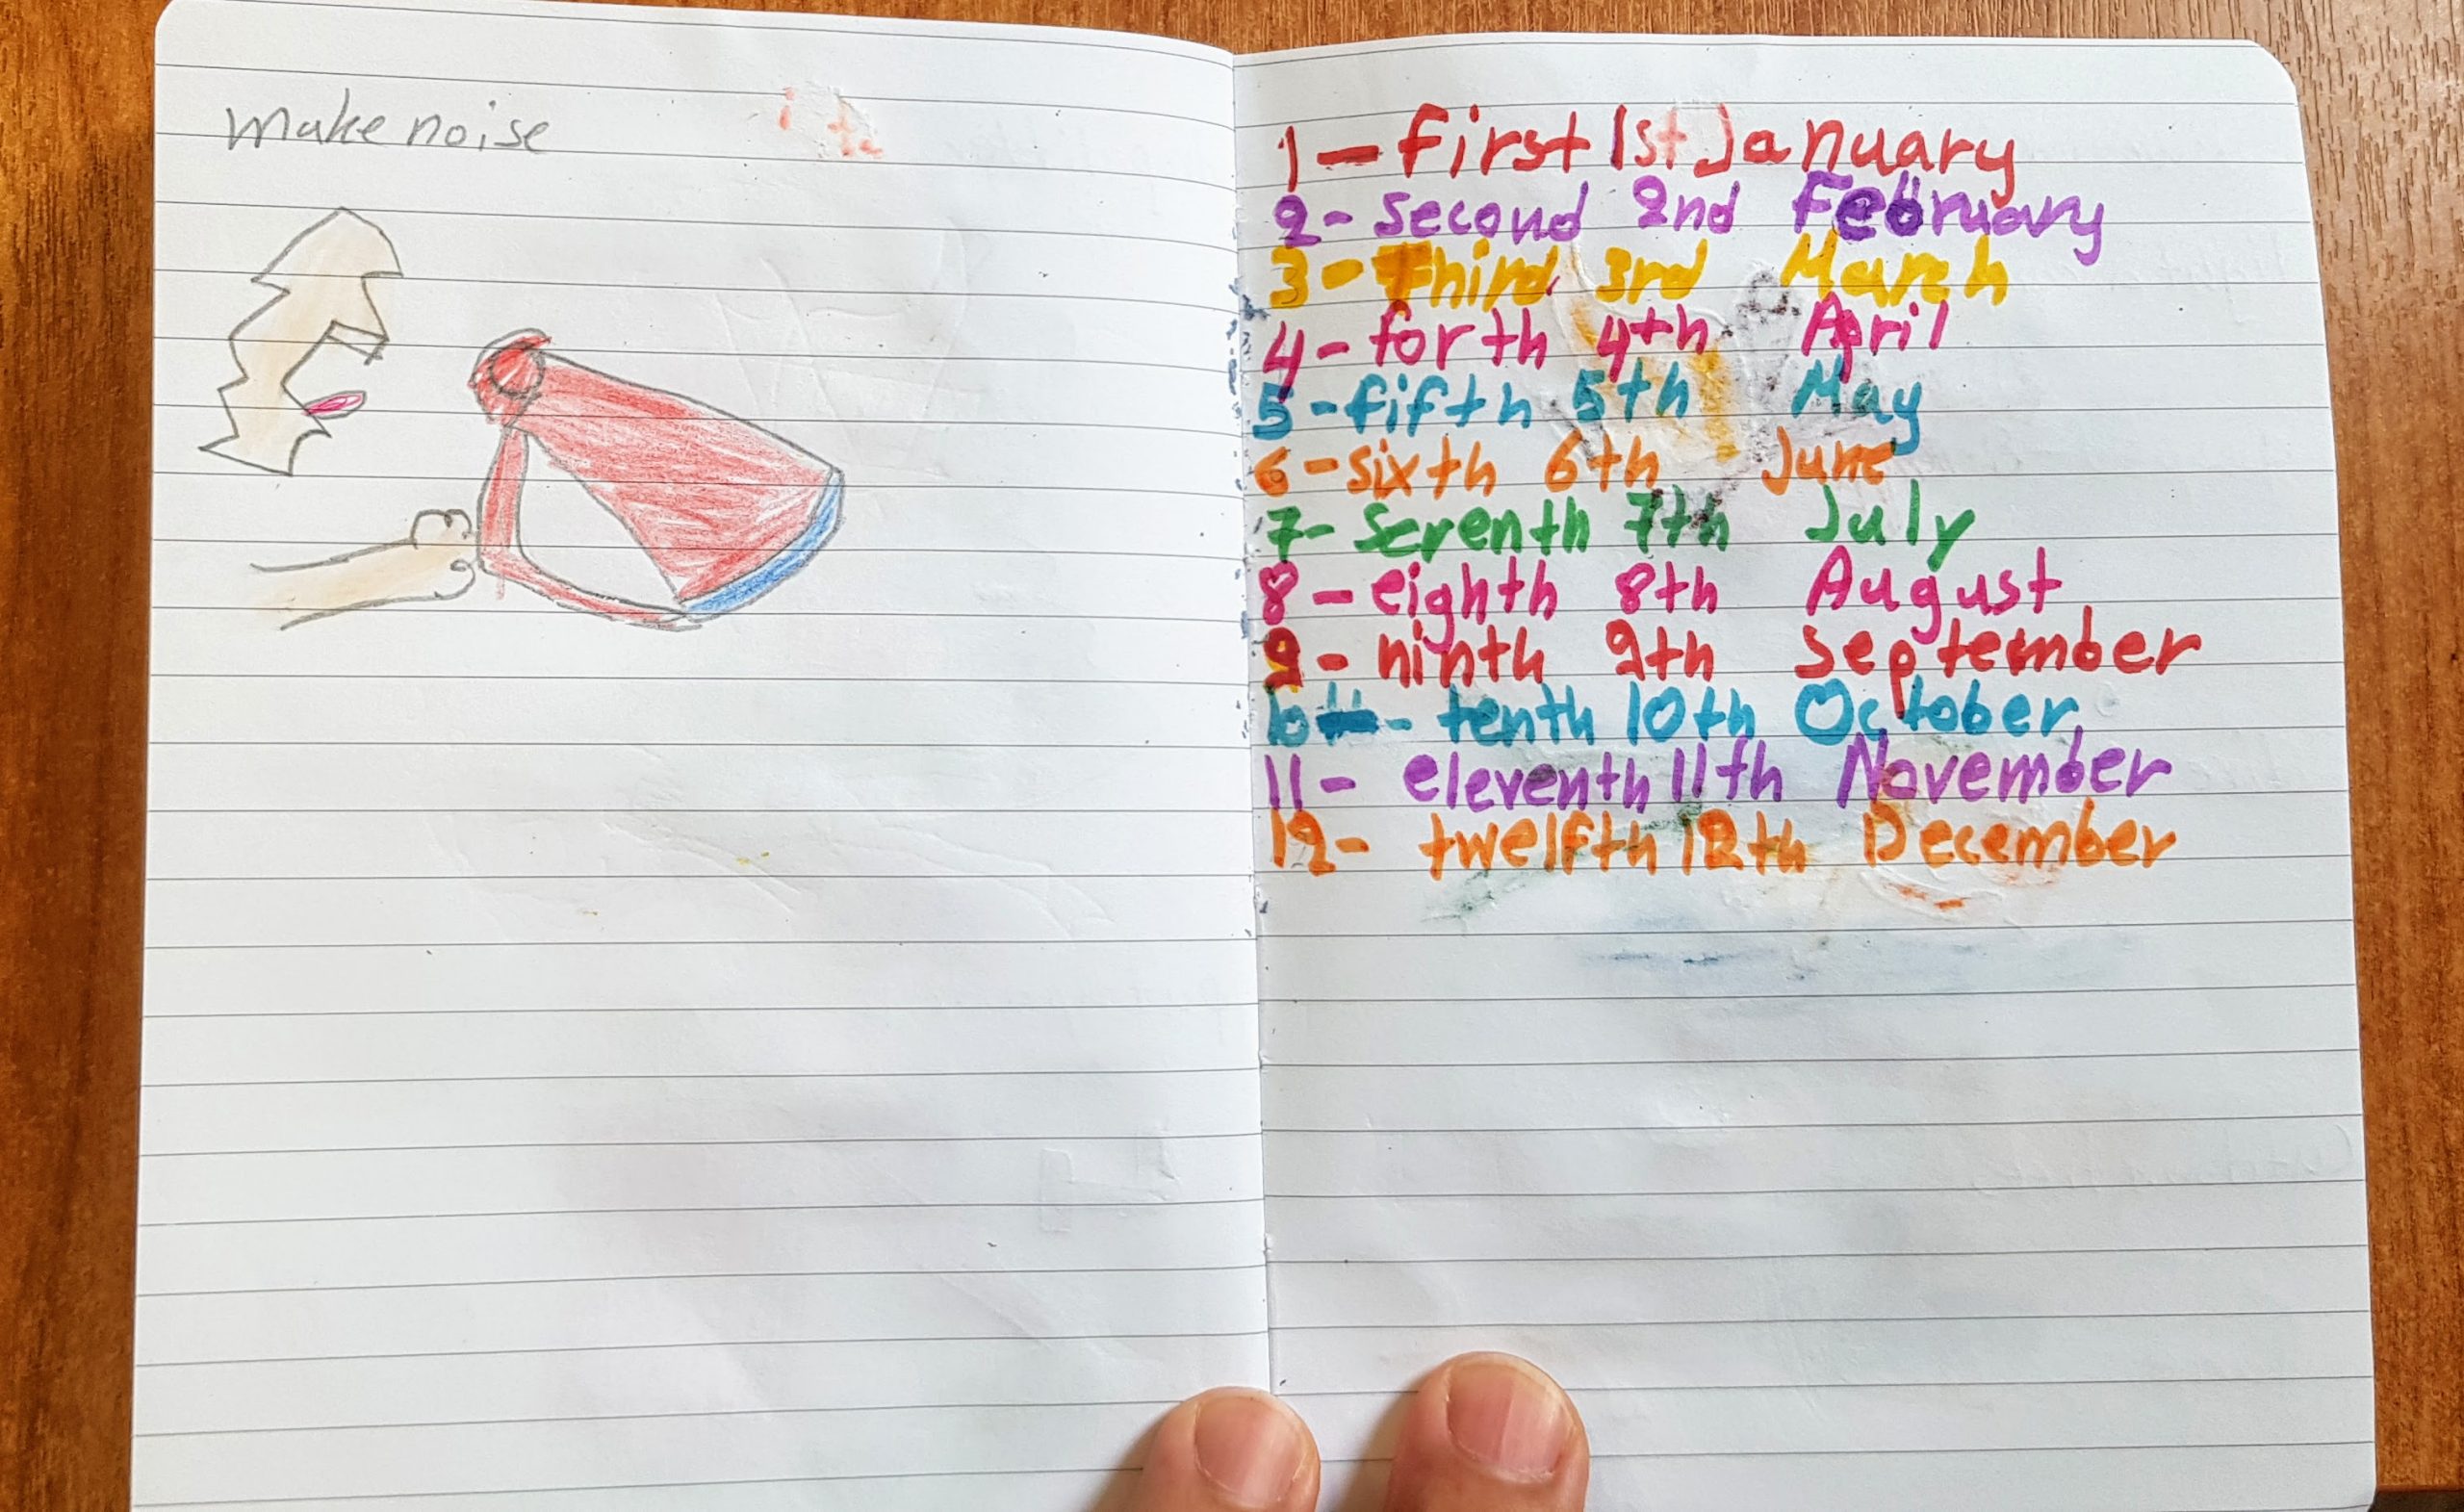 make noise
1 - first 1st January
2 - second 2nd February
3 - Third 3rd March
4 - forth 4th April
5 - fifth 5th May
6 - sixth 6th June
7 - seventh 7th July
8 - eighth 8th August
9 - ninth 9th September
10 - tenth 10th October
11 - eleventh 11th November
12 - twelfth 12th December